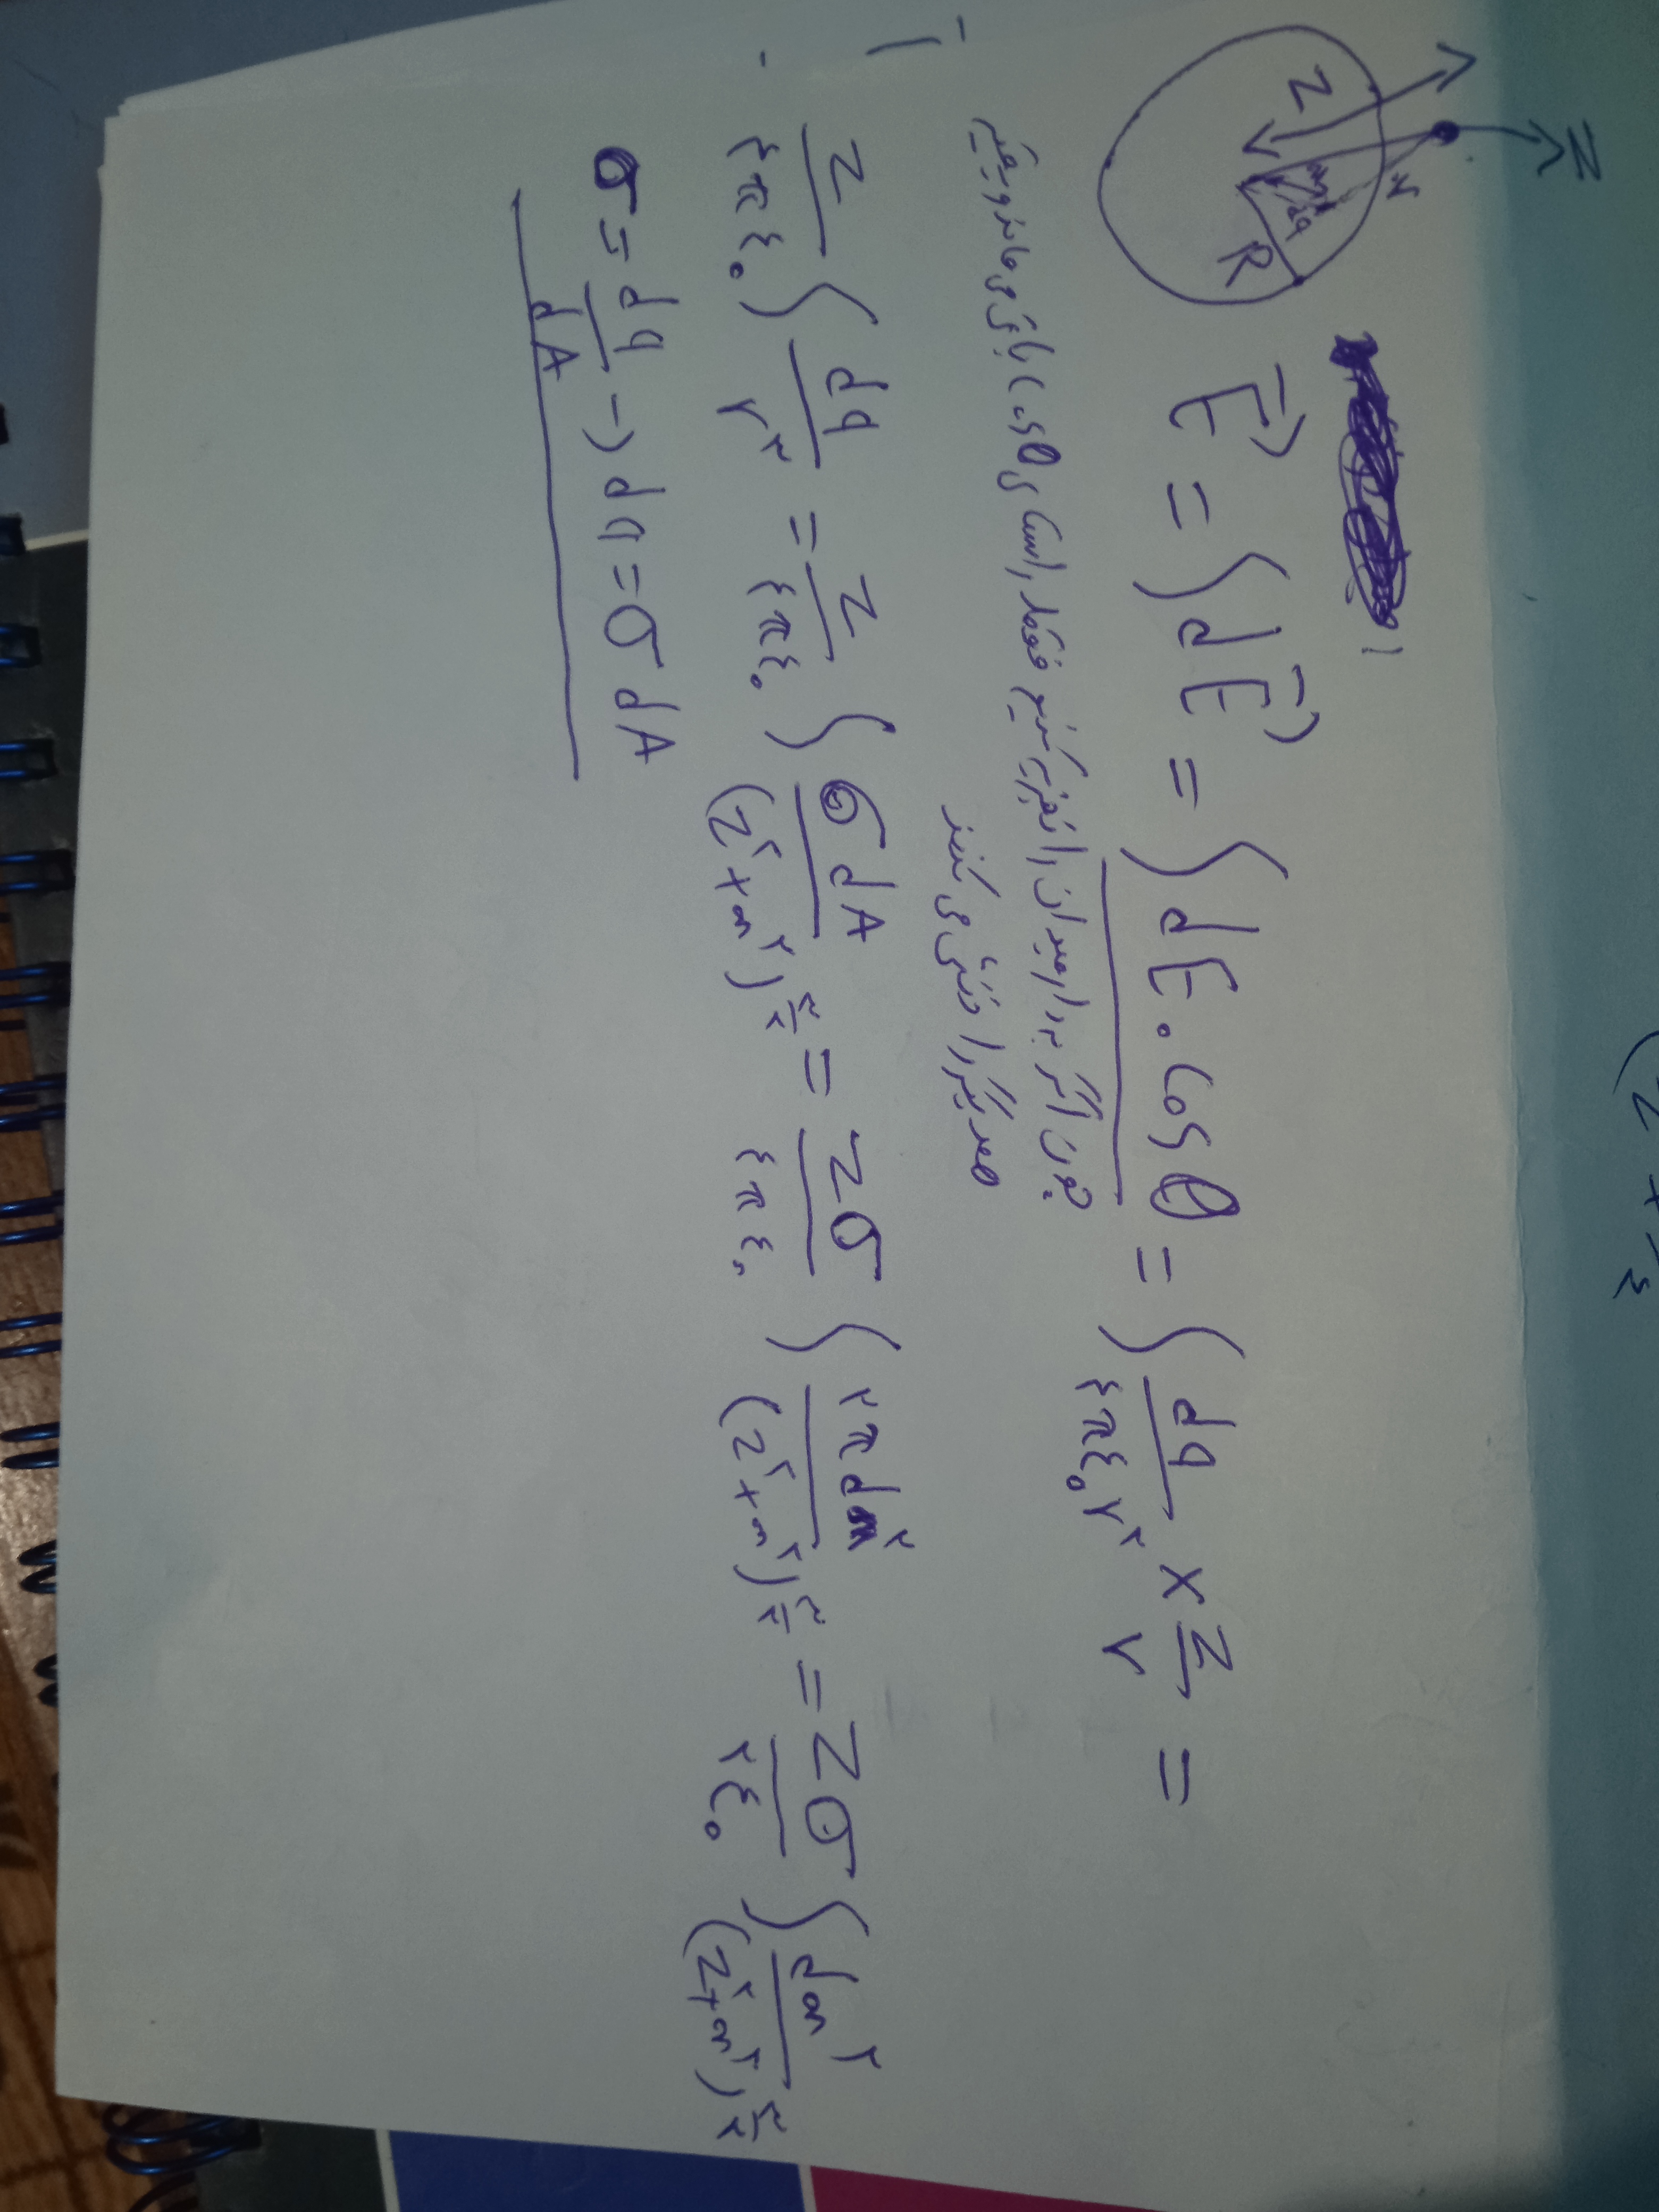 (z² + 
z
r
z
dq
R
E⃗ = ∫ dE⃗ = ∫ dE . cos θ = ∫ dq / ۴πε₀r² × z / r =
چون اگر بردار میدان را تجزیه کنیم فقط راستای cosθ باقی می ماند و بقیه
همدیگر را خنثی می کنند
z / ۴πε₀ ∫ dq / r³ = z / ۴πε₀ ∫ σ dA / (z²+m²)^۳/۲ = zσ / ۴πε₀ ∫ ۲π dm² / (z²+m²)^۳/۲ = zσ / ۲ε₀ ∫ dm² / (z²+m²)^۳/۲
σ = dq / dA → dq = σ dA